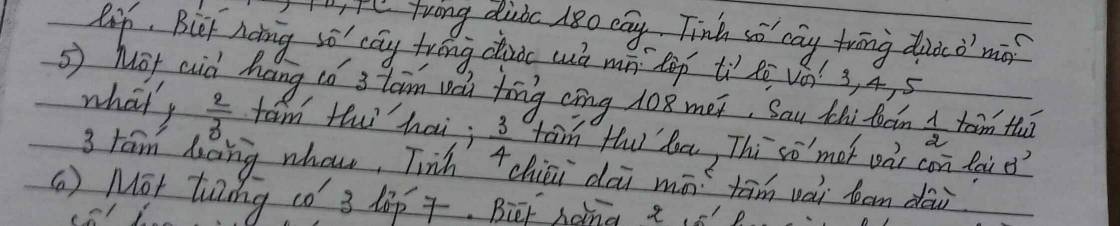 trồng được 180 cây. Tính số cây trồng được ở mỗi
lớp. Biết rằng số cây trồng được của mỗi lớp tỉ lệ với 3, 4, 5
5) Một cửa hàng có 3 tấm vải tổng cộng 108 mét. Sau khi bán 1/2 tấm thứ
nhất, 2/3 tấm thứ hai; 3/4 tấm thứ ba, Thì số mét vải còn lại ở
3 tấm bằng nhau. Tính chiều dài mỗi tấm vải ban đầu.
6) Một trường có 3 lớp 7. Biết rằng 2